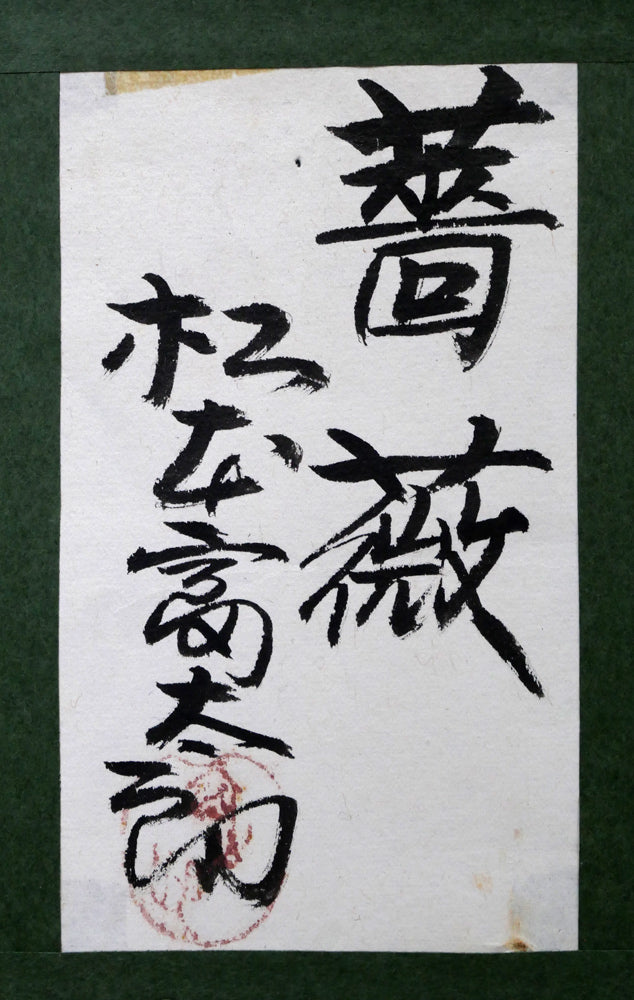 薔薇
松本富太郎